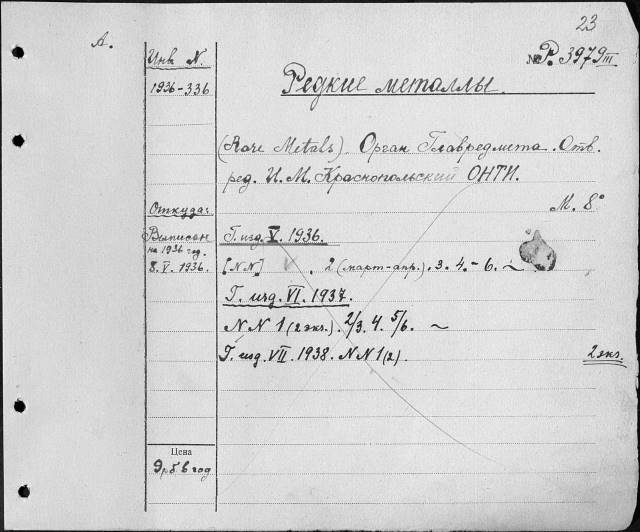 23
А.
Инв. N.
№ Р. 3979 III
1936-336
Редкие металлы.
(Rare Metals). Орган Главредмета. Отв.
ред. И. М. Краснопольский ОНТИ.
М. 8°
Откуда:
Выписан
на 1936 год.
8. V. 1936.
Г. изд. V. 1936.
[NN] 2 (март-апр.). 3. 4. - 6. ~
Г. изд. VI. 1937.
NN 1 (2 экз.). 2/3. 4. 5/6. ~
Г. изд. VII. 1938. NN 1(2).
2 экз.
Цена
9 р. б. в год